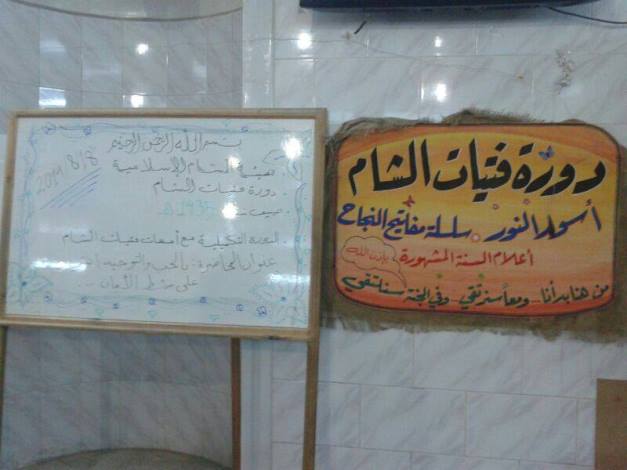 بسم الله الرحمن الرحيم
هيئة الشام الإسلامية
2014/8/8
دورة فتيات الشام
الدورة التكميلية مع أمهات فتيات الشام
عنوان المحاضرة: بالحب والتوجيه
على الأمان
دورة فتيات الشام
النور سلسلة مفاتيح النجاح
أعلام السنة المشهورة
بإذن الله
من هنا بدأنا - ومعا سنرتقي وفي الجنة سنلتقي